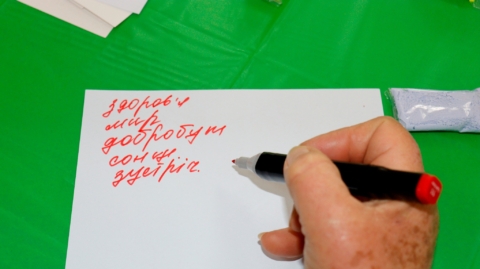 здоров'я
мир
добробут
сонце
зустріч.